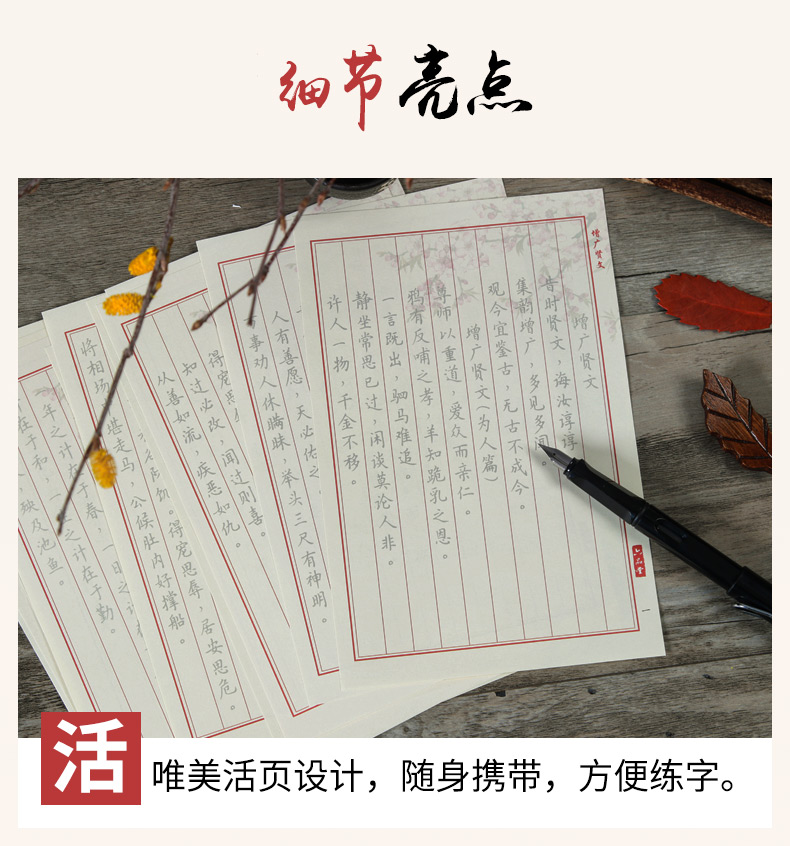 细节亮点
增广贤文
增广贤文
昔时贤文，诲汝谆谆
集韵增广，多见多闻。
观今宜鉴古，无古不成今。
增广贤文(为人篇)
尊师以重道，爱众而亲仁。
鸦有反哺之孝，羊知跪乳之恩。
一言既出，驷马难追。
静坐常思己过，闲谈莫论人非。
许人一物，千金不移。
六品堂
一
人有善愿，天必佑之
事劝人休瞒昧，举头三尺有神明。
得宠思
知过必改，闻过则喜。
从善如流，疾恶如仇。
得宠思辱，居安思危。
将相
堪走马，公侯肚内好撑船。
年之计在于春，一日之计
之计在于勤。
殃及池鱼。
活
唯美活页设计，随身携带，方便练字。